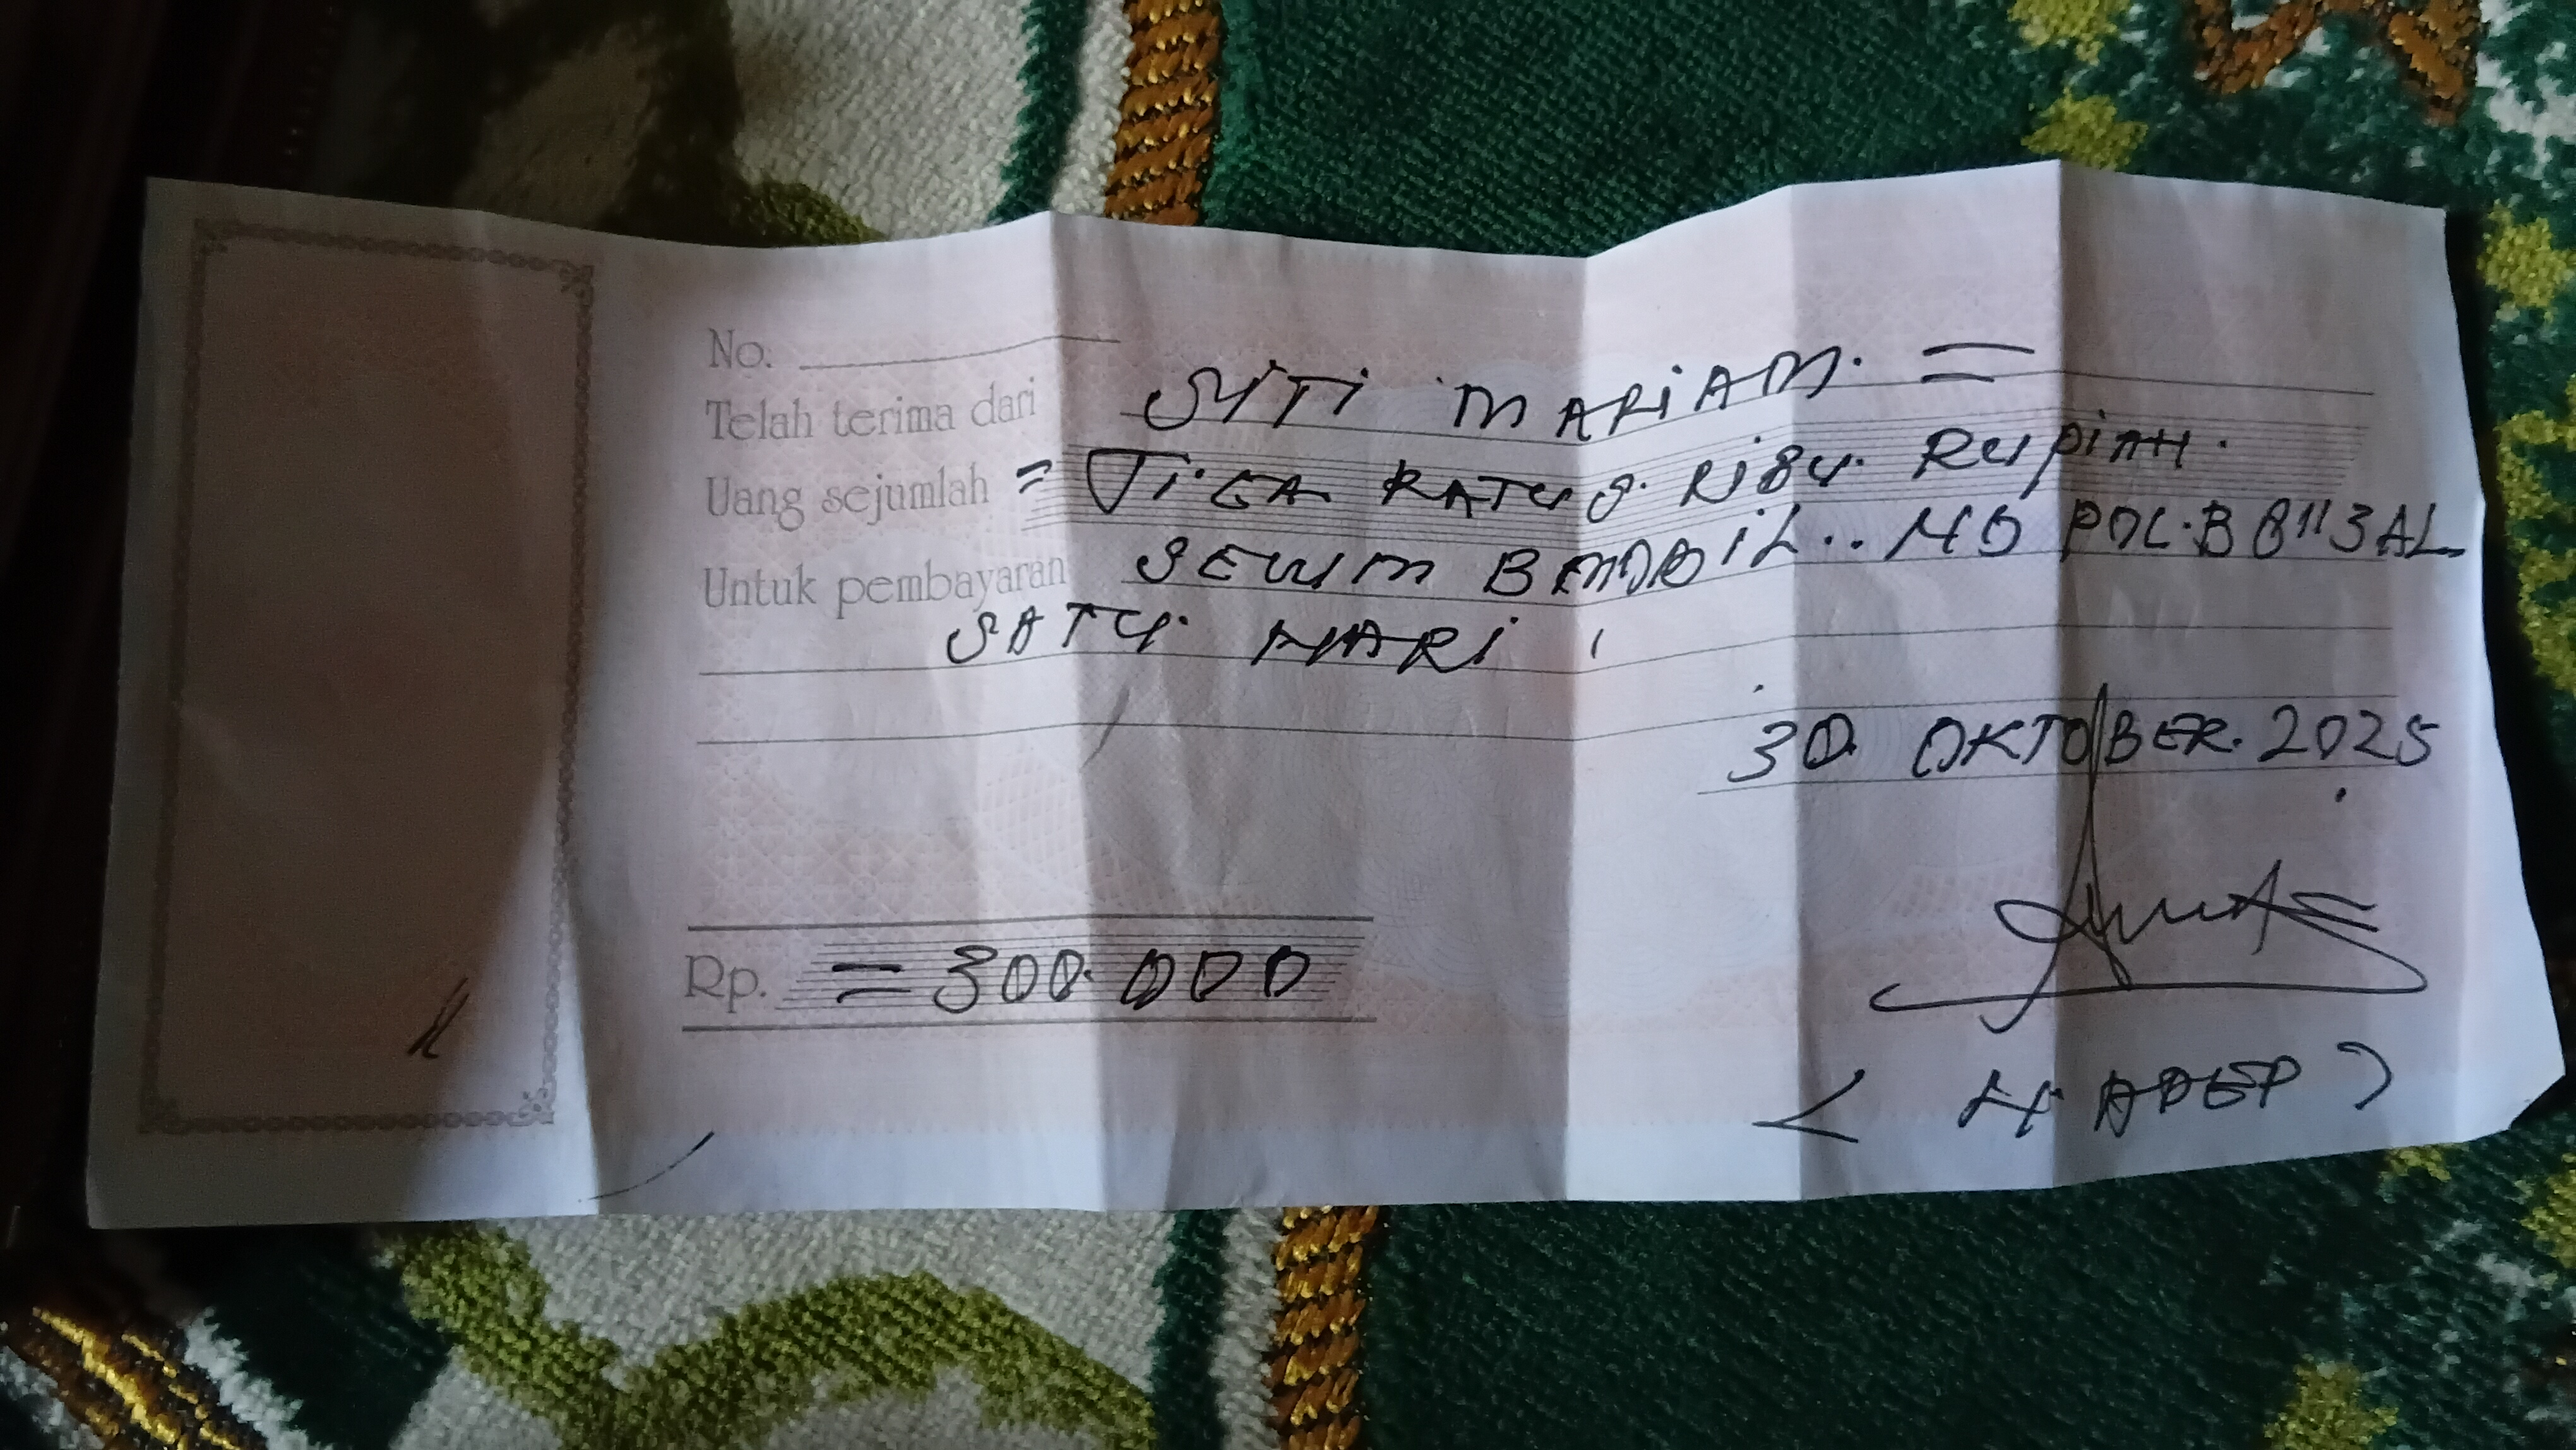 No.
Telah terima dari SITI MARIAM. =
Uang sejumlah = TIGA RATUS RIBU. RUPIAH.
Untuk pembayaran SEWA MOBIL.. NO POL. B 8113 AL
SATU HARI
30. OKTOBER. 2025
Rp. = 300.000
( H. ADEP )